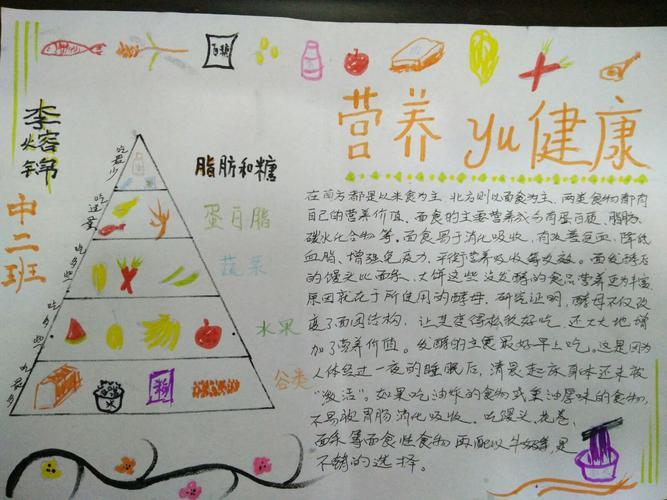 白糖
营养 yu 健康
李熔锦
中二班
吃最少
脂肪和糖
吃适量
蛋白脂
吃多些
蔬菜
吃多些
水果
吃最多
谷类
米
面
在南方都是以米食为主，北方则以面食为主，两类食物都有
自己的营养价值。面食的主要营养成分有蛋白质、脂肪、
碳水化合物等。面食易于消化吸收，有改善贫血、降低
血脂、增强免疫力、平衡营养吸收等功效。面发酵后
的馒头比面条、大饼这些没发酵的食品营养更为丰富
原因就在于所使用的酵母。研究证明，酵母不仅改
变了面团结构，让其变得松软好吃，还大大地增
加了营养价值。发酵的主食最好早上吃。这是因为
人体经过一夜的睡眠后，清晨起床身体还未被
“激活”。如果吃油炸的食物或重油厚味的食物，
不易被胃肠消化吸收。吃馒头、花卷、
面条等面食性食物再配以牛奶等，是
不错的选择。